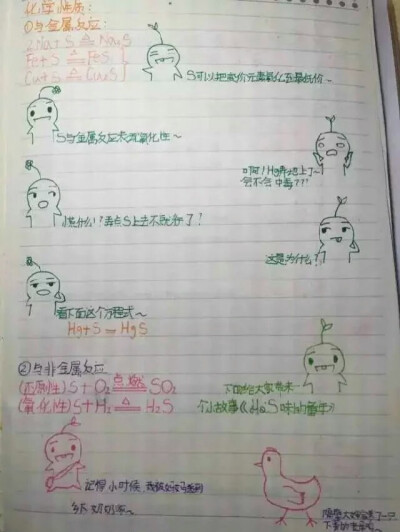 化学性质:
①与金属反应:
2Na+S≜Na₂S
Fe+S≜FeS
Cu+S≜Cu₂S
S可以把变价元素氧化至最低价~
S与金属反应表现氧化性~
啊!Hg弄地上了~
会不会中毒???
怕什么!?弄点S上去不就行了?
这是为什么?
看下面这个方程式~
Hg+S=HgS
②与非金属反应
(还原性)S+O₂点燃SO₂
(氧化性)S+H₂≜H₂S
下面给大家带来一
个小故事《H₂S味的童年》
记得小时候
乡下奶奶家~